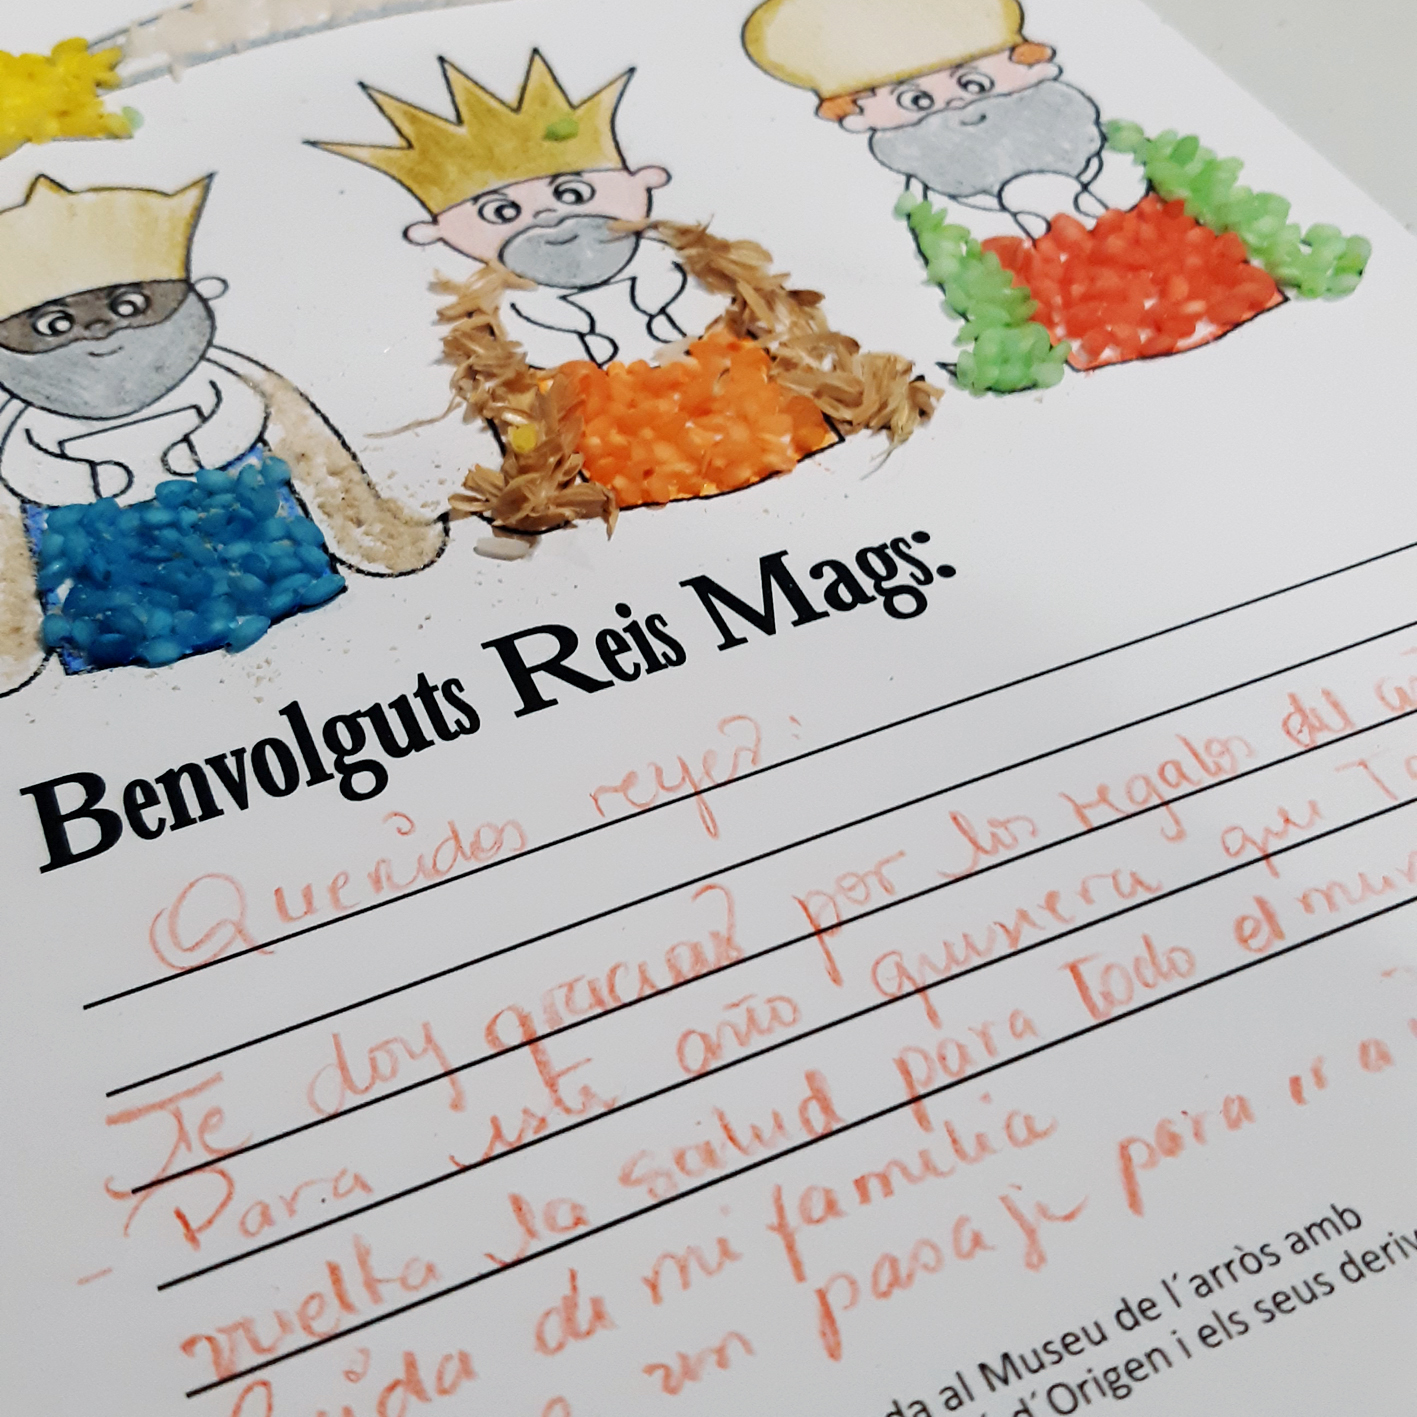 Benvolguts Reis Mags:
Queridos reyes:
Te doy gracias por los regalos del
Para este año quisiera que
vuelta la salud para todo el
de mi familia
un pasaje para ir a
al Museu de l´arròs amb
d´Origen i els seus